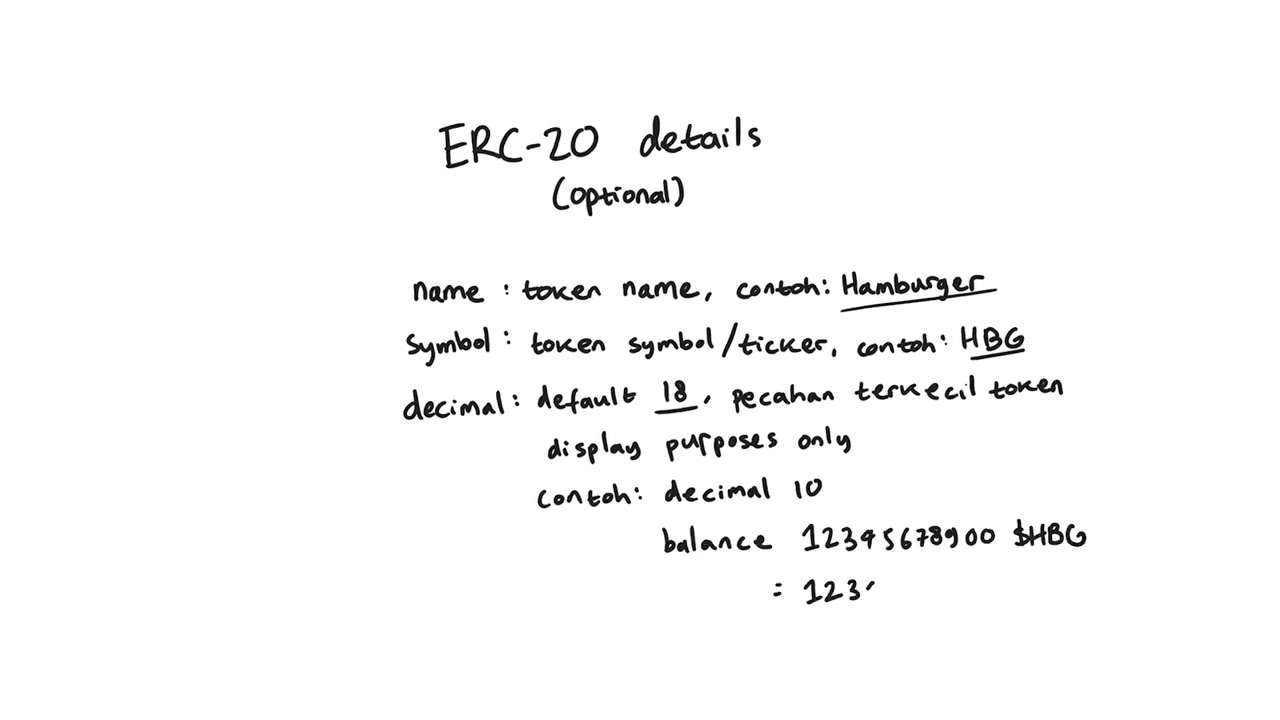 ERC-20 details
(optional)
name : token name, contoh: Hamburger
symbol : token symbol/ticker, contoh: HBG
decimal : default 18, pecahan terkecil token
display purposes only
contoh: decimal 10
balance 12345678900 $HBG
= 123